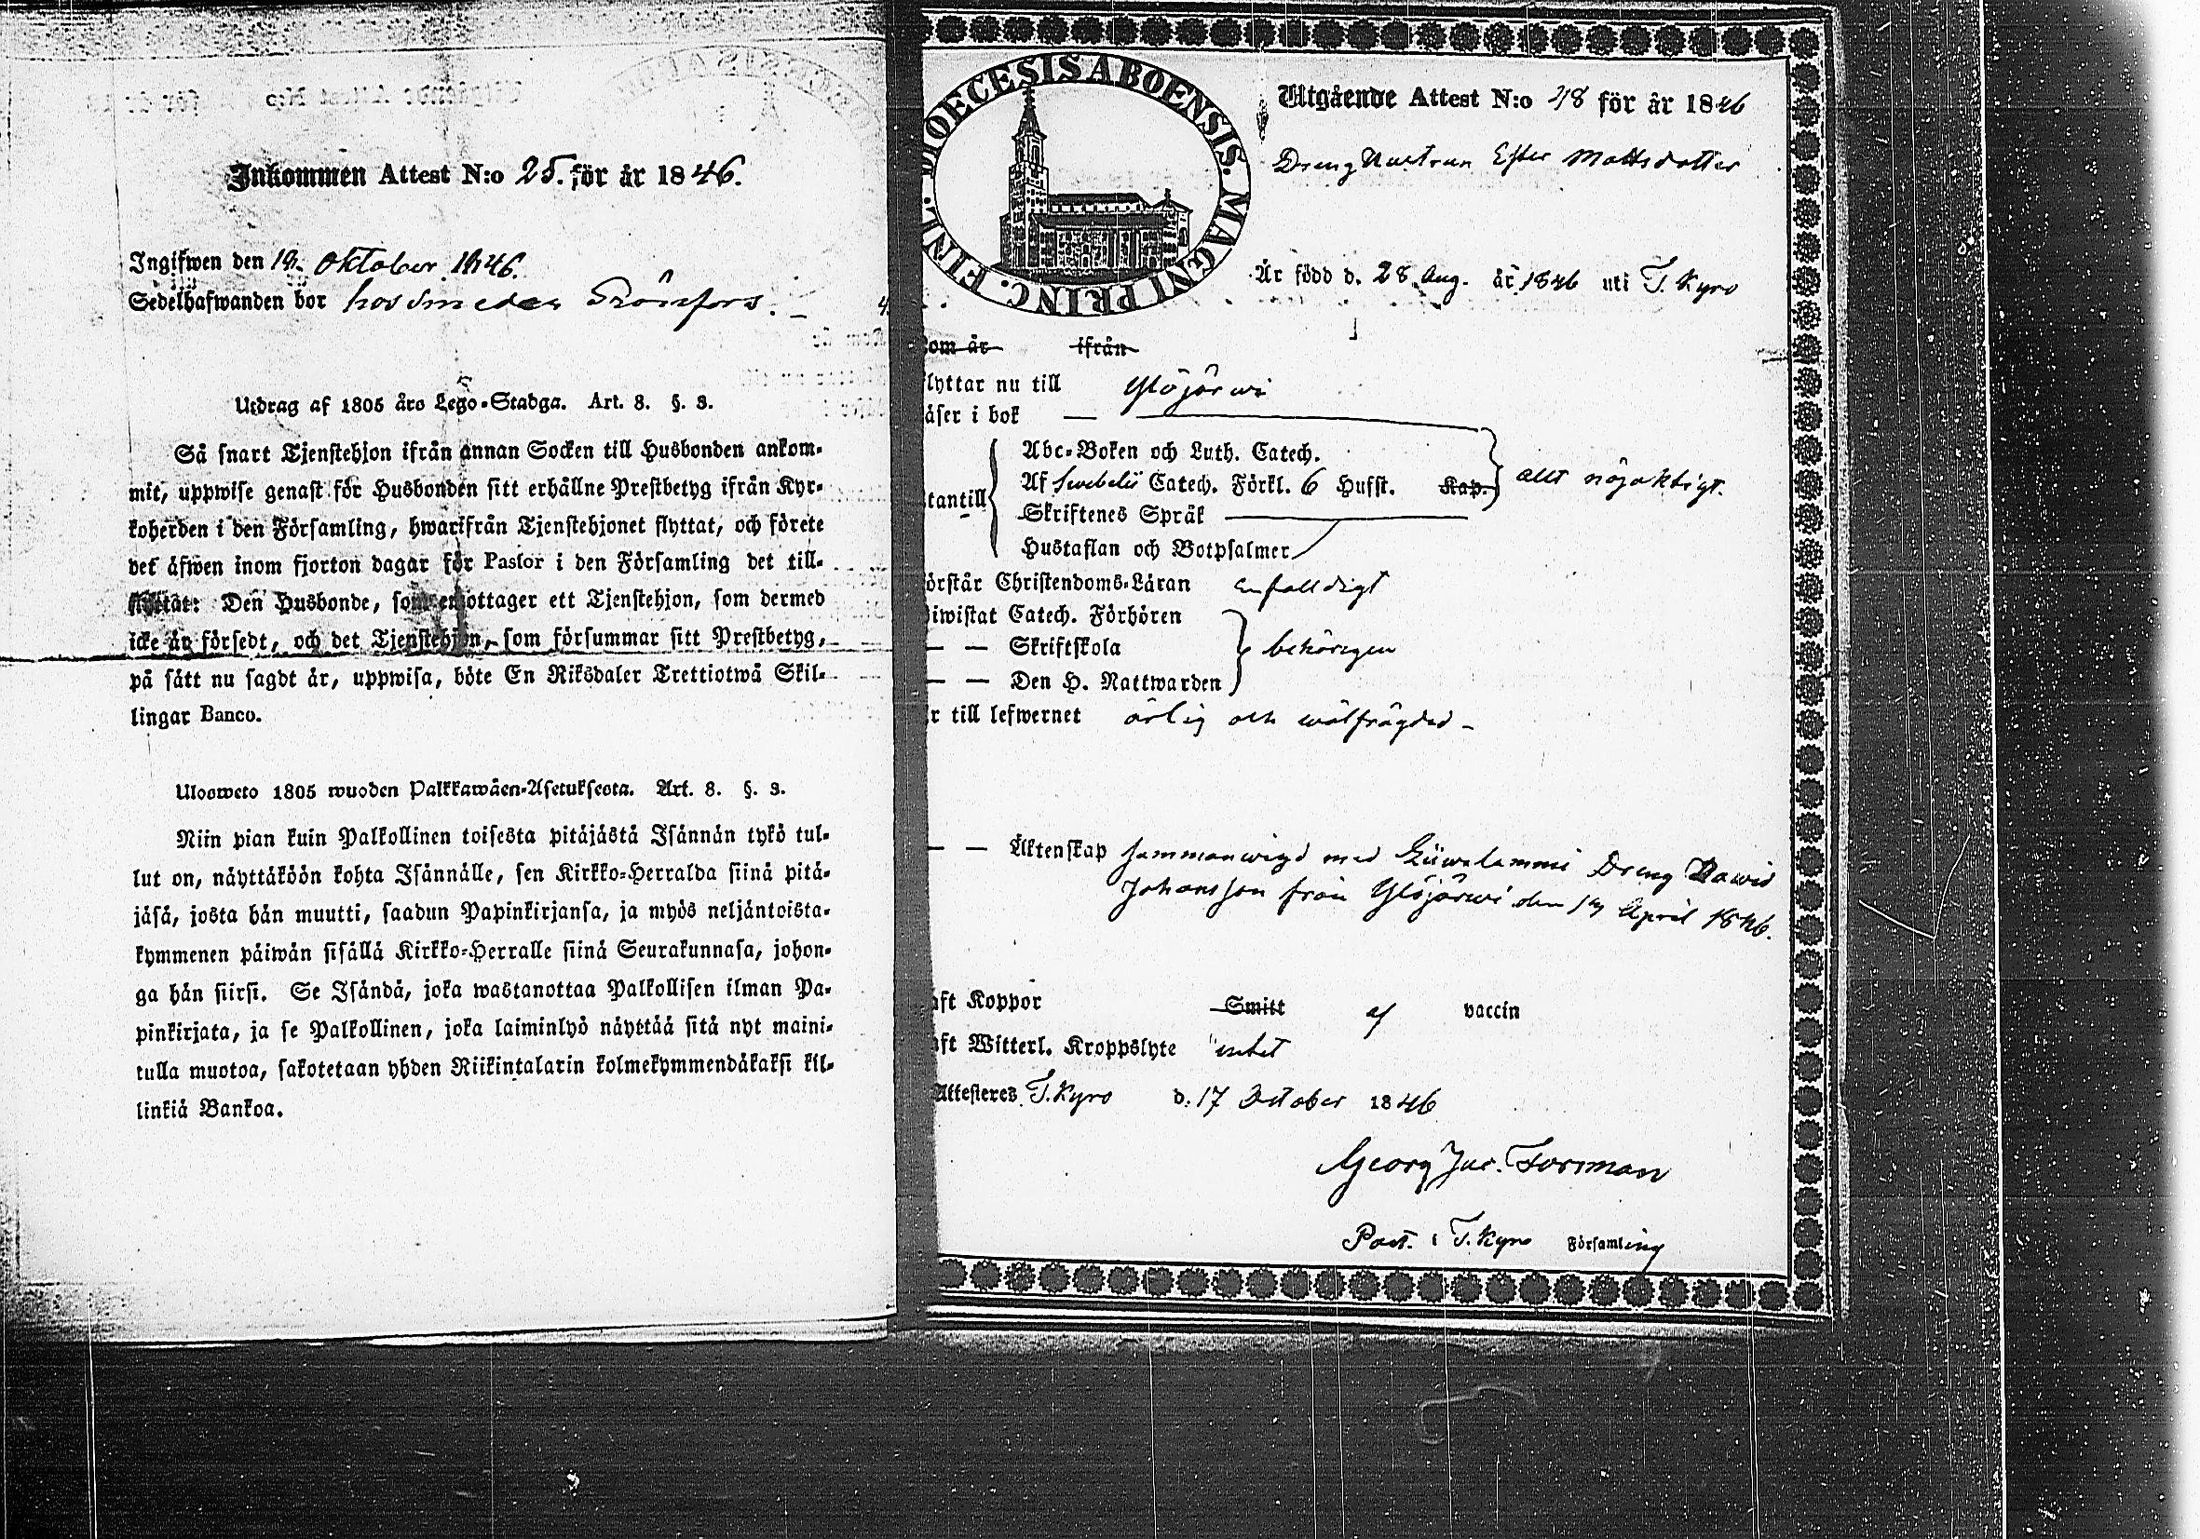 Inkommen Attest N:o 25. för år 1846.
Ingifwen den 19. Oktober 1846.
Sedelhafwanden bor hos Smeden Grönfors.
Utdrag af 1805 års Lego-Stadga. Art. 8. §. 3.
Så snart Tjenstehjon ifrån annan Socken till Husbonden ankom-
mit, uppwise genast för Husbonden sitt erhållne Prestbetyg ifrån Kyr-
koherden i den Församling, hwarifrån Tjenstehjonet flyttat, och förete
det äfwen inom fjorton dagar för Pastor i den Församling det till-
flyttat: Den Husbonde, som emottager ett Tjenstehjon, som dermed
icke än försedt, och det Tjenstehjon, som försummar sitt Prestbetyg,
på sätt nu sagdt är, uppwisa, böte En Riksdaler Trettiotwå Skil-
lingar Banco.
Ulosweto 1805 wuoden Palkkawäen-Asetuksesta. Art. 8. §. 3.
Niin pian kuin Palkollinen toisesta pitäjästä Isännän tykö tul-
lut on, näyttäköön kohta Isännälle, sen Kirkko-Herralda siinä pitä-
jäsä, josta hän muutti, saadun Papinkirjansa, ja myös neljäntoista-
kymmenen päiwän sisällä Kirkko-Herralle siinä Seurakunnasa, johon-
ga hän siirsi. Se Isändä, joka wastanottaa Palkollisen ilman Pa-
pinkirjata, ja se Palkollinen, joka laiminlyö näyttää sitä nyt maini-
tulla muotoa, sakotetaan yhden Riikintalarin kolmekymmendäkaksi kil-
linkiä Bankoa.
DIOECESIS ABOENSIS. MAGNI PRINC. FINL.
Utgående Attest N:o 48 för år 1846
Dreng Hustrun Ester Mattsdotter
Är född d. 28 Aug. år 1846 uti T. Kyro
Kom år ifrån
flyttar nu till Ylöjärwi
läser i bok
Abc-Boken och Luth. Catech.
Af Swebelii Catech. Förkl. 6 Hufst. Kap. allt nöjaktigt.
utantill
Skriftenes Språk
Hustaflan och Botpsalmer
förstår Christendoms-Läran enfaldigt
biwistat Catech. Förhören
— — Skriftskola behörigen
— — Den H. Nattwarden
är till lefwernet ärlig och wälfrägdad
— — Äktenskap sammanwigd med Dreng Dawid
Johansson från Ylöjärwi den April 1846.
haft Koppor Smitt af vaccin
haft Witterl. Kroppslyte intet
Attesteres T. Kyro d. 17 October 1846
Georg Jac. Forsman
Past. i T. Kyro Församling